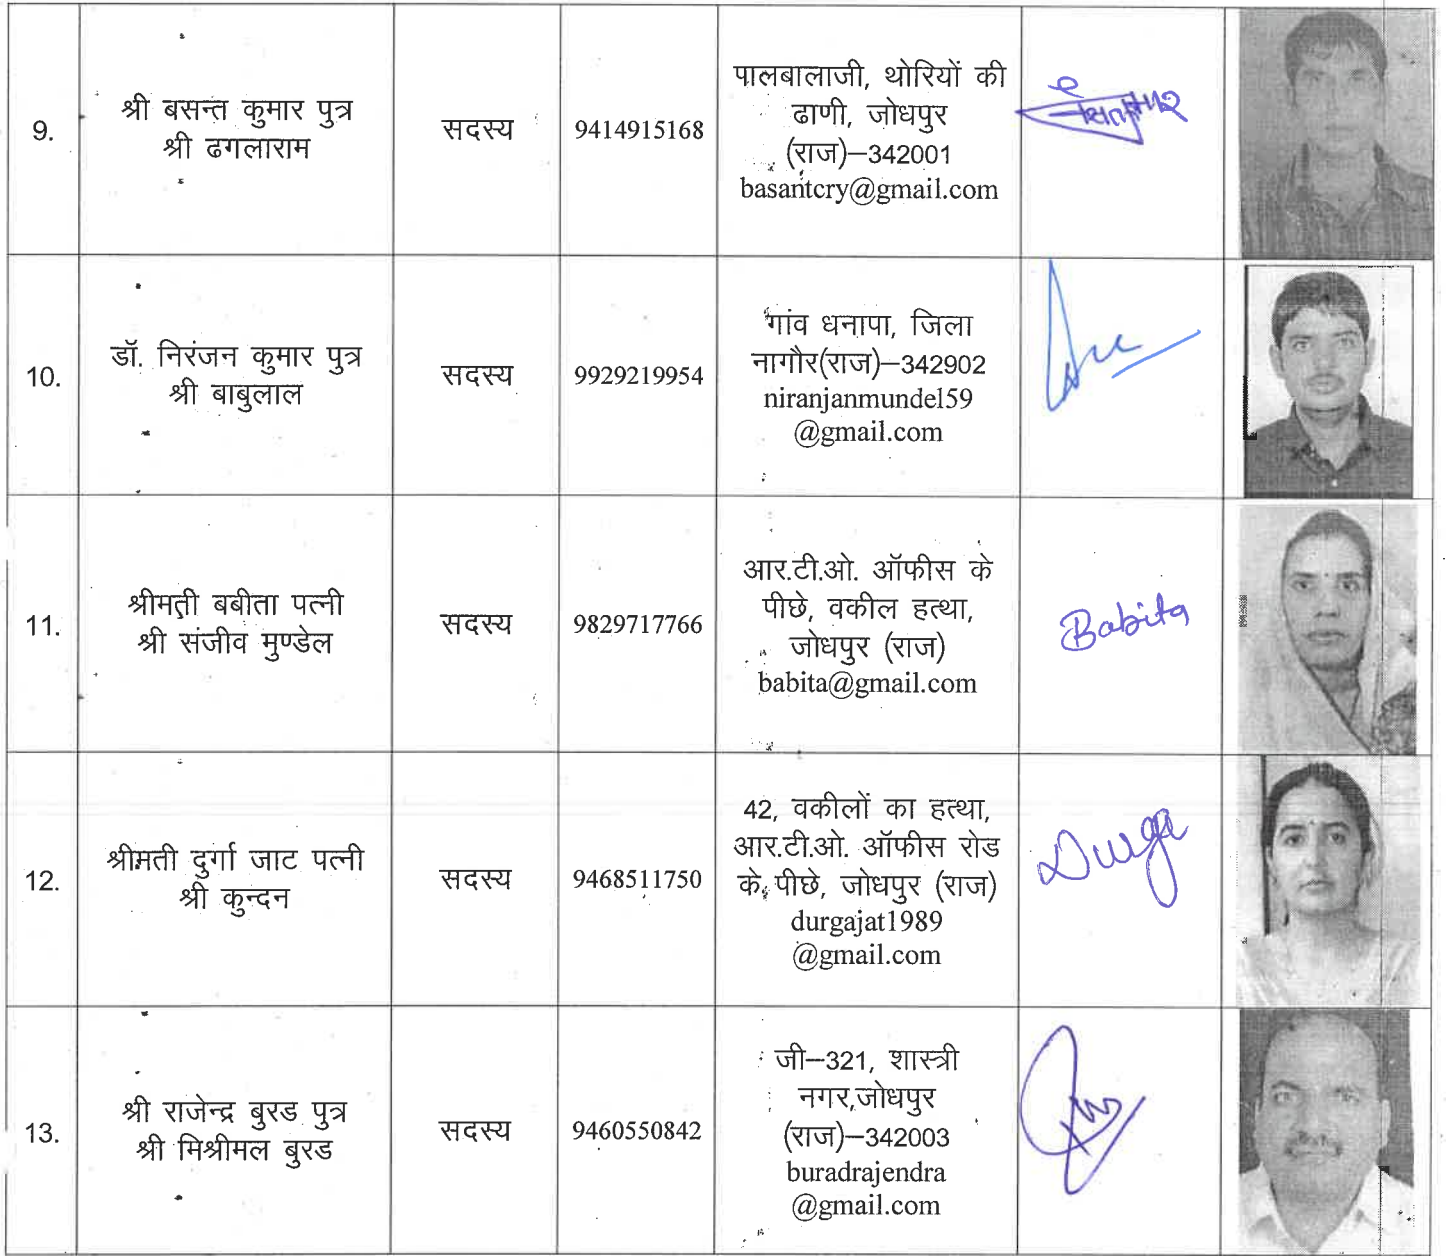 9.
श्री बसन्त कुमार पुत्र
श्री ढगलाराम
सदस्य
9414915168
पालबालाजी, थोरियों की
ढाणी, जोधपुर
(राज)–342001
basantcry@gmail.com
10.
डॉ. निरंजन कुमार पुत्र
श्री बाबुलाल
सदस्य
9929219954
गांव धनापा, जिला
नागौर(राज)–342902
niranjanmundel59
@gmail.com
11.
श्रीमती बबीता पत्नी
श्री संजीव मुण्डेल
सदस्य
9829717766
आर.टी.ओ. ऑफीस के
पीछे, वकील हत्था,
जोधपुर (राज)
babita@gmail.com
Babita
12.
श्रीमती दुर्गा जाट पत्नी
श्री कुन्दन
सदस्य
9468511750
42, वकीलों का हत्था,
आर.टी.ओ. ऑफीस रोड
के पीछे, जोधपुर (राज)
durgajat1989
@gmail.com
Durga
13.
श्री राजेन्द्र बुरड पुत्र
श्री मिश्रीमल बुरड
सदस्य
9460550842
जी–321, शास्त्री
नगर,जोधपुर
(राज)–342003
buradrajendra
@gmail.com